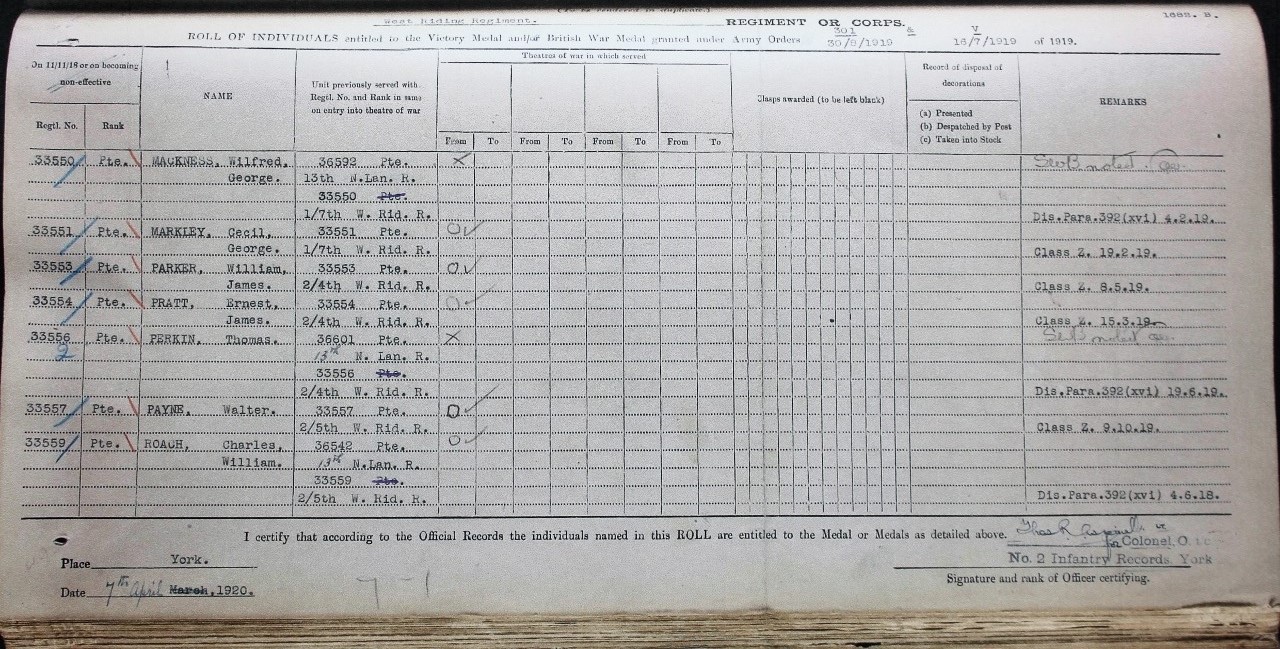 (To be rendered in duplicate.)
1682. B.
West Riding Regiment. REGIMENT OR CORPS.
ROLL OF INDIVIDUALS entitled to the Victory Medal and/or British War Medal granted under Army Orders 301 30/8/1919 & V 16/7/1919 of 1919.
On 11/11/18 or on becoming non-effective
Regtl. No. Rank
NAME
Unit previously served with Regtl. No. and Rank in same on entry into theatre of war
Theatres of war in which served
From To From To From To From To
Clasps awarded (to be left blank)
Record of disposal of decorations
(a) Presented
(b) Despatched by Post
(c) Taken into Stock
REMARKS
33550 Pte. MACKNESS, Wilfred, 36592 Pte. X noted.
George. 13th N.Lan. R.
33550 Pte.
1/7th W. Rid. R. Dis.Para.392(xvi) 4.2.19.
33551 Pte. MARKLEY, Cecil, 33551 Pte. O
George. 1/7th W. Rid. R. Class Z. 19.2.19.
33553 Pte. PARKER, William, 33553 Pte. O
James. 2/4th W. Rid. R. Class Z. 8.5.19.
33554 Pte. PRATT, Ernest, 33554 Pte. O
James. 2/4th W. Rid. R. Class Z. 15.3.19.
33556 Pte. PERKIN, Thomas. 36601 Pte. X noted
2 13th N. Lan. R.
33556 Pte.
2/4th W. Rid. R. Dis.Para.392(xvi) 19.6.19.
33557 Pte. PAYNE, Walter. 33557 Pte. O
2/5th W. Rid. R. Class Z. 9.10.19.
33559 Pte. ROACH, Charles, 36542 Pte. O
William. 13th N.Lan. R.
33559 Pte.
2/5th W. Rid. R. Dis.Para.392(xvi) 4.6.18.
I certify that according to the Official Records the individuals named in this ROLL are entitled to the Medal or Medals as detailed above.
for Colonel,
Place York. No. 2 Infantry Records, York
Signature and rank of Officer certifying.
Date 7th April March, 1920.
7-1